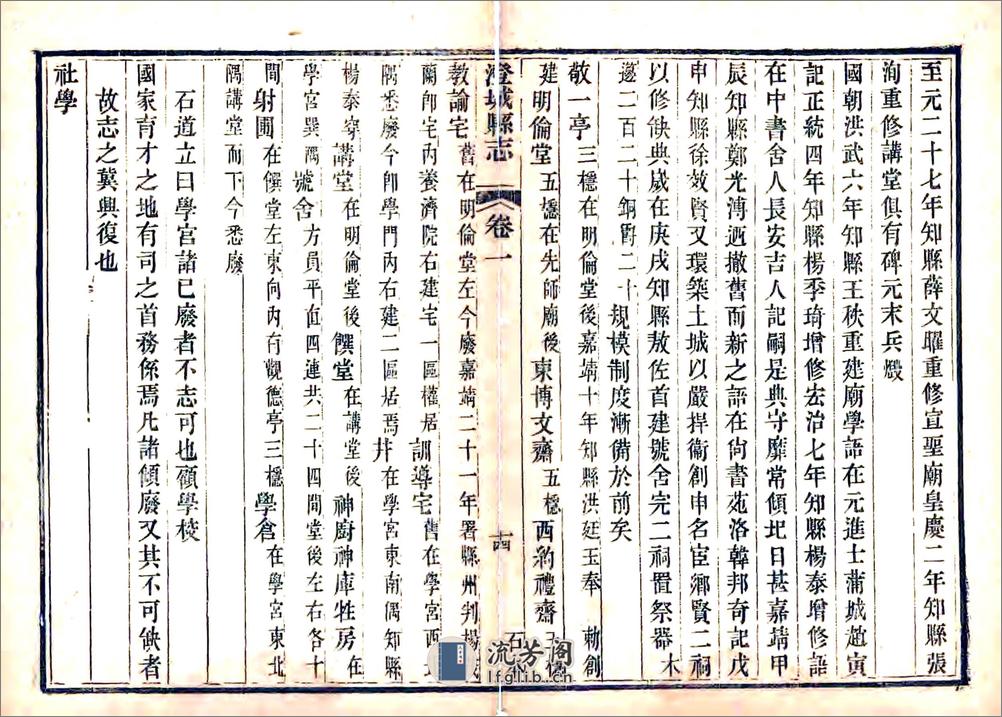 至元二十七年知縣薛文曜重修宣聖廟皇慶二年知縣張
洵重修講堂俱有碑元末兵燬
國朝洪武六年知縣王秩重建廟學語在元進士蒲城趙寅
記正統四年知縣楊季琦增修宏治七年知縣楊泰增修語
在中書舍人長安吉人記嗣是典守靡常傾圯日甚嘉靖甲
辰知縣鄭光溥迺撤舊而新之語在尙書苑洛韓邦奇記戊
申知縣徐效賢又環築土城以嚴捍衞創申名臣鄉賢二祠
以修缺典嵗在庚戌知縣敖佐首建號舍完二祠置祭器木
邊二百二十銅爵二十規模制度漸備於前矣
敬一亭三穩在明倫堂後嘉靖十年知縣洪廷玉奉 勅創
建明倫堂五穩在先師廟後東博文齋五穩西約禮齋
澄城縣志 卷一 十四
教諭宅舊在明倫堂左今廢嘉靖二十一年署縣州判楊
蘭卽宅內養濟院右建宅一區權居訓導宅舊在學宮西
隅悉廢今卽學門內右建二區居焉井在學宮東南偶知縣
楊泰穿講堂在明倫堂後饌堂在講堂後神廚神庫牲房在
學宮巽隅號舍方員平直四連共二十四間堂後左右各十
間射圃在饌堂左東向內有觀德亭三穩學倉在學宮東北
隅講堂而下今悉廢
石道立曰學宮諸已廢者不志可也顧學校
國家育才之地有司之首務係焉凡諸傾廢又其不可缺者
故志之冀興復也
社學
流芳閣
lfglib.cn